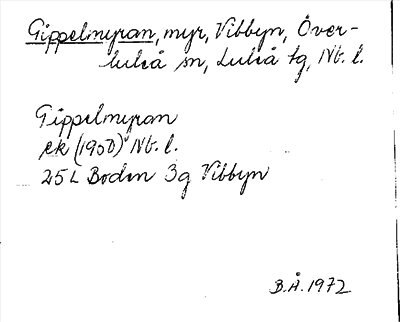 Gippelmyran, myr, Vibbyn, Över-
luleå sn, Luleå tg, Nb. l.
Gippelmyran
ek (1950) Nb. l.
25L Boden 3g Vibbyn
B.Å. 1972